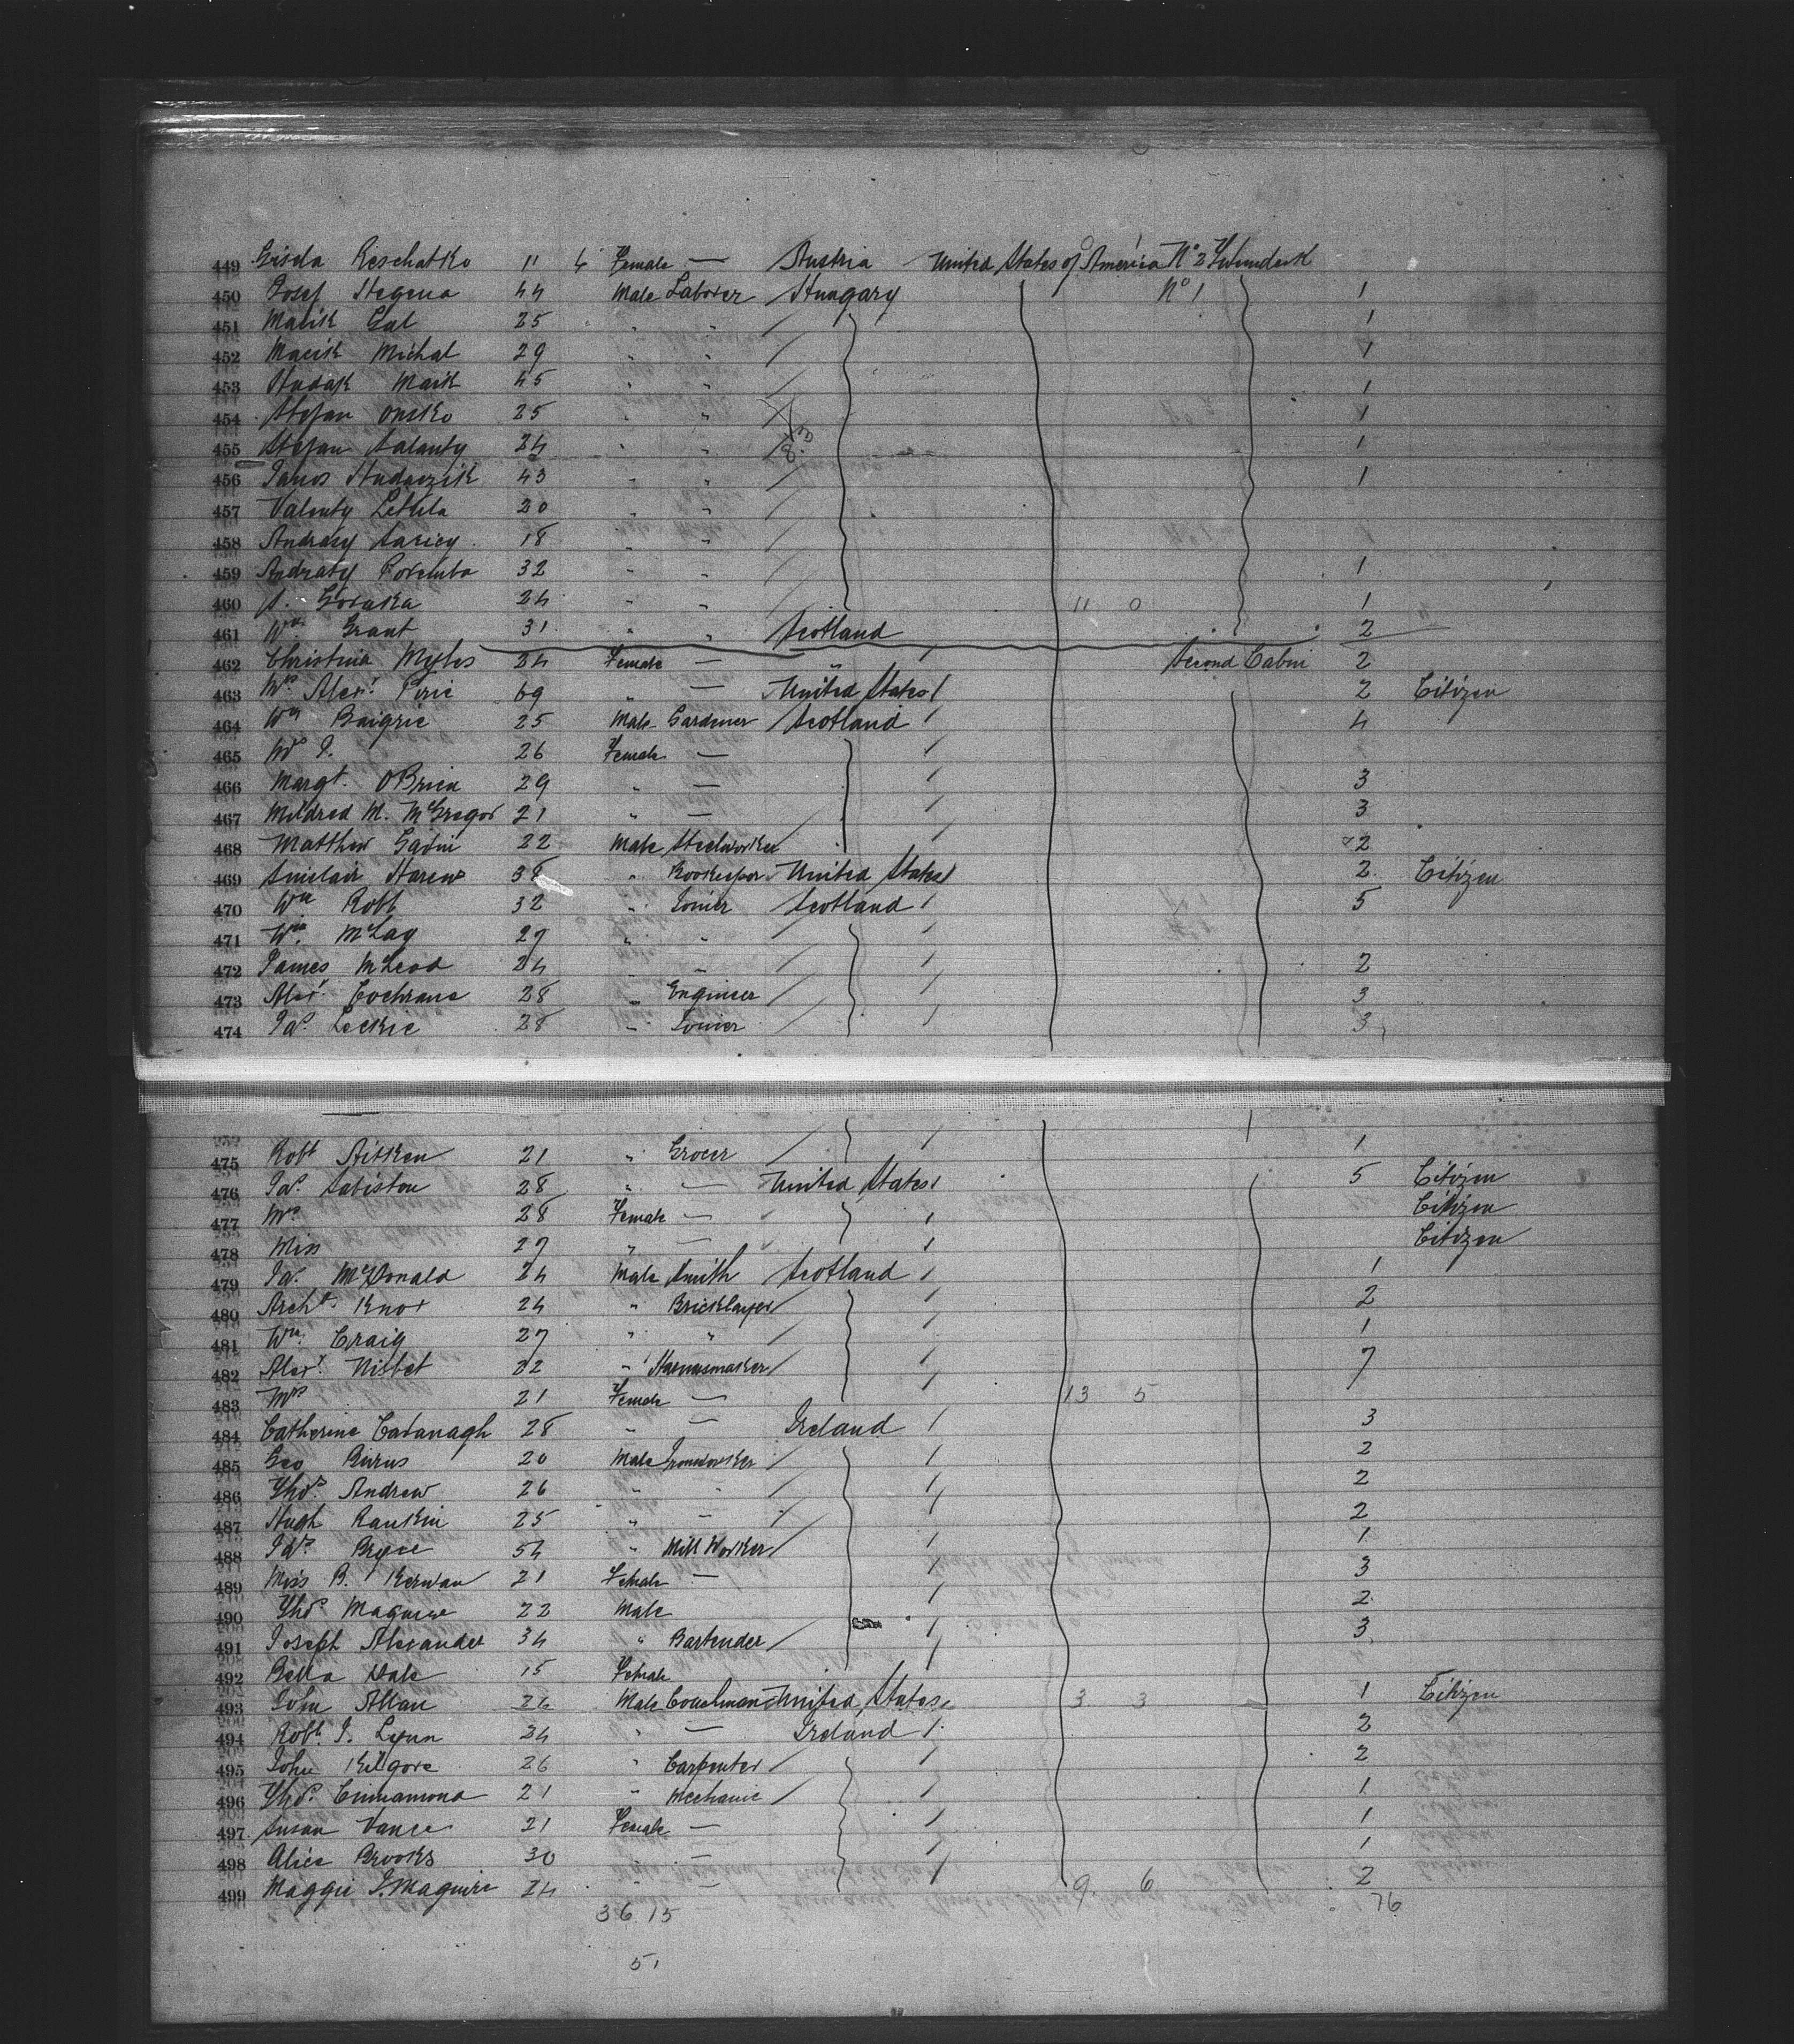 449 Gisela Reschatko 11 4 Female — Austria United States of America No 2 Steerage
450 Josef Hegena 44 Male Laborer Hungary No 1 1
451 Matik Gal 25 " " / 1
452 Macik Michal 29 " " / 1
453 Hudak Maik 45 " " / 1
454 Stefan Onsko 25 " " 1
455 Stefan Salanty 24 " " 1
456 Janos Hudaczik 43 " " / 1
457 Valenty Letkela 20 " " /
458 Andrasy 18 " " /
459 Andraty Poremba 32 " " / 1
460 A. Goraka 24 " " / 11 0 1
461 Wm Grant 31 " " Scotland 2
462 Christina Myles 24 Female — " / Second Cabin 2
463 Mrs Alexr Pirie 69 " — United States / 2 Citizen
464 Wm Baigrie 25 Male Gardener Scotland / 4
465 Mrs J. 26 Female — /
466 Margt. OBrien 29 " — / 3
467 Mildred M. McGregor 21 " — / 3
468 Matthew Gavin 22 Male Steelworker / 2
469 Sinclair Harcus 38 " Bookeeper United States / 2 Citizen
470 Wm Robb 32 " Joiner Scotland / 5
471 Wm. McLay 27 " " / /
472 James McLeod 24 " " / / 2
473 Alexr Cochrane 28 " Engineer / / 3
474 Jas. Leckie 28 " Joiner / / 3
475 Robt Aitken 21 " Grocer / / 1
476 Jas. Sabiston 28 " — United States / 5 Citizen
477 Mrs 28 Female — / Citizen
478 Miss 27 " — / Citizen
479 Jas. McDonald 24 Male Smith Scotland / 1
480 Archd. Knox 24 " Bricklayer / / 2
481 Wm. Craig 27 " " / / 1
482 Alexr Nisbet 22 " Harnessmaker / / 7
483 Mrs 21 Female — / 13 5
484 Catherine Cavanagh 28 " — Ireland / 3
485 Geo Burns 20 Male Ironworker / / 2
486 Thos. Andrew 26 " " / / 2
487 Hugh Rankin 25 " " / / 2
488 Jas. Bryce 54 " Mill Worker / / 1
489 Miss B. Kerwan 21 Female — / 3
490 Thos Maguire 22 Male / 2
491 Joseph Alexander 34 " Bartender / / 3
492 Bella Dale 15 Female /
493 John Allan 26 Male Coachman United States / 3 3 1 Citizen
494 Robt. J. Lynn 24 " — Ireland / 2
495 John Kilgore 26 " Carpenter / / 2
496 Thos. Cinnamond 21 " Mechanic / / 1
497 Susan Vance 21 Female — / 1
498 Alice Brooks 30 " — / 1
499 Maggie J. Maguire 24 " — / 9 6 2
36 15 76
51